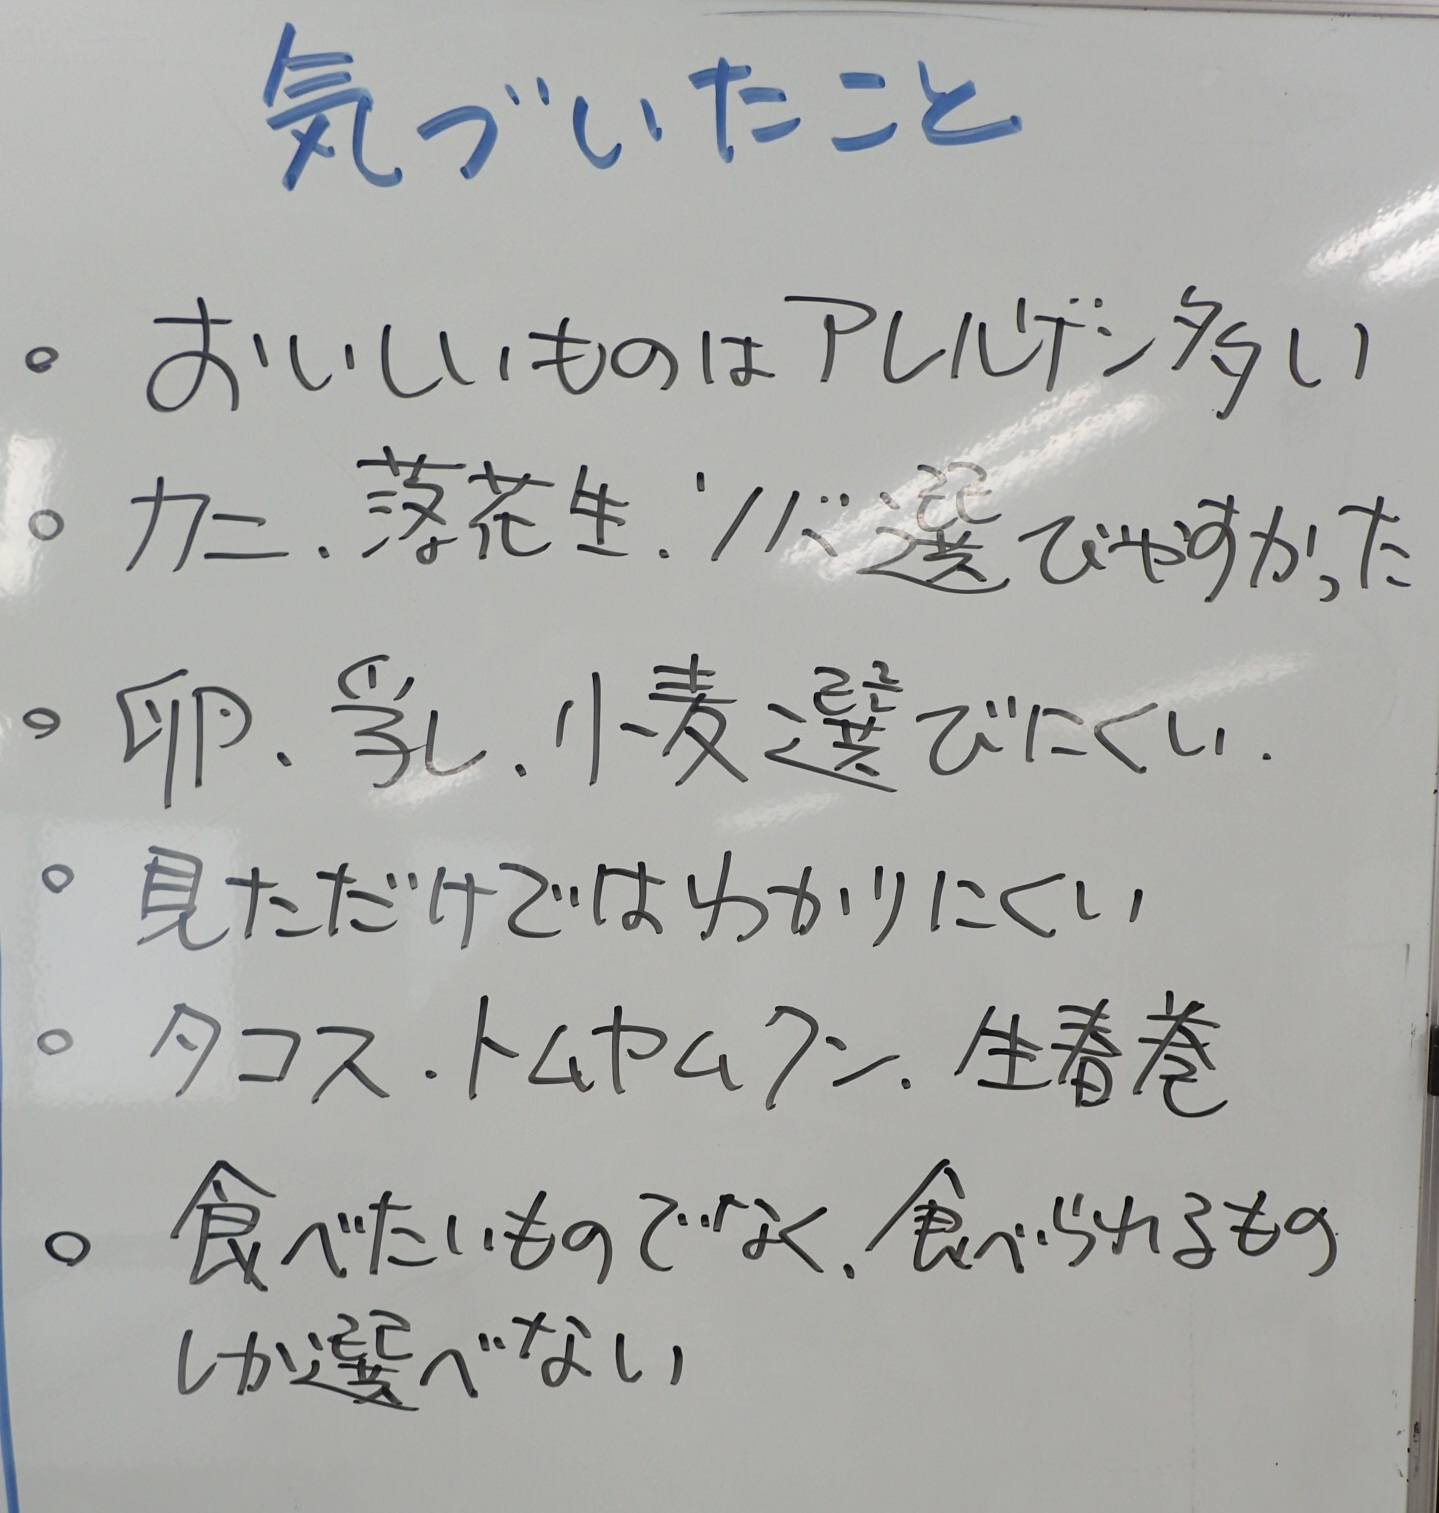 気づいたこと
。おいしいものはアレルゲン多い
。カニ、落花生、ソバ選びやすかった
。卵、乳、小麦選びにくい.
。見ただけではわかりにくい
。タコス、トムヤムクン、生春巻
。食べたいものでなく、食べられるもの
しか選べない